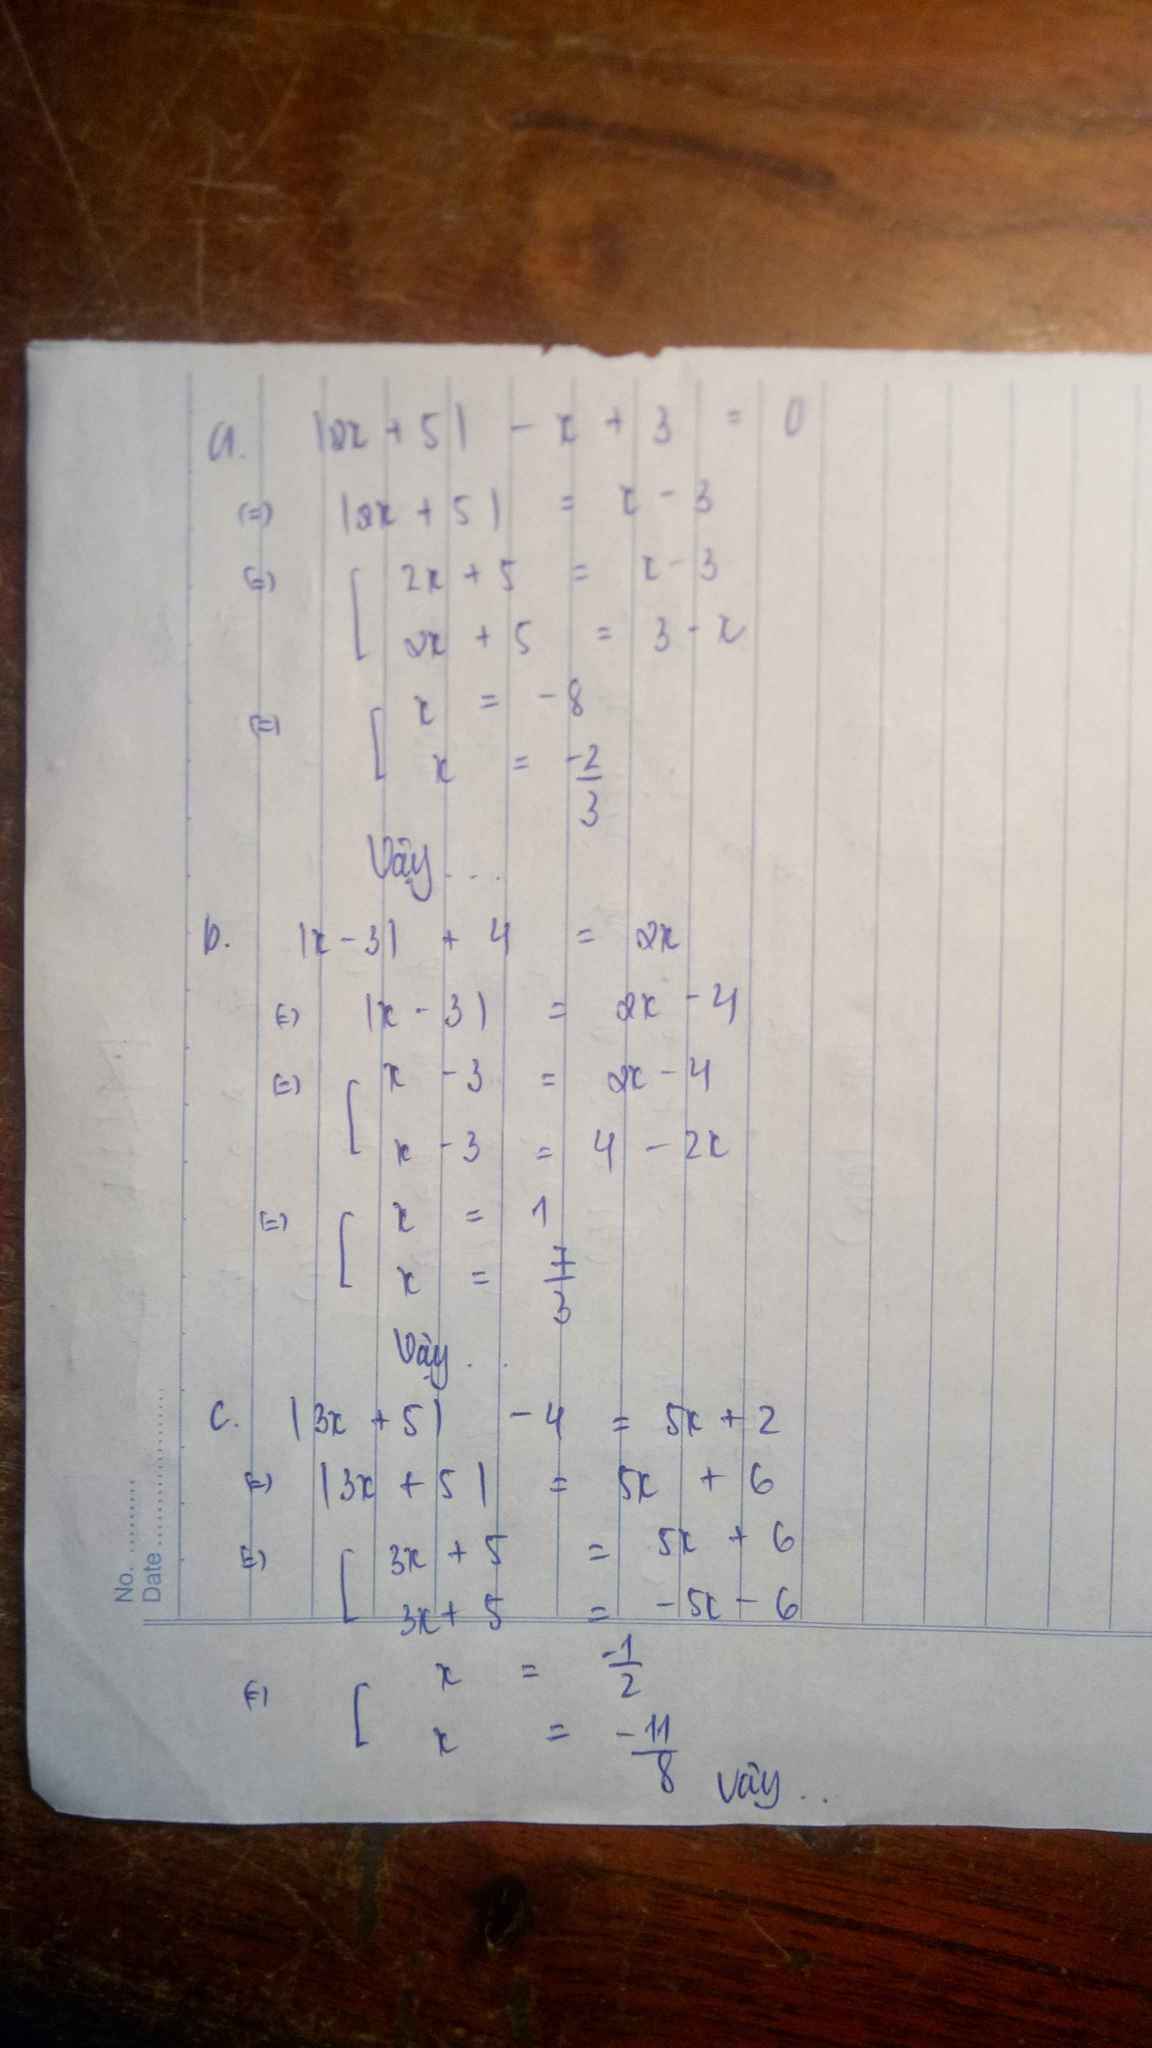 a. |2x + 5| - x + 3 = 0
(=) |2x + 5| = x - 3
(=) [ 2x + 5 = x - 3
2x + 5 = 3 - x
(=) [ x = -8
x = -2/3
Vậy ...
b. |x - 3| + 4 = 2x
(=) |x - 3| = 2x - 4
(=) [ x - 3 = 2x - 4
x - 3 = 4 - 2x
(=) [ x = 1
x = 7/3
Vậy ..
c. |3x + 5| - 4 = 5x + 2
(=) |3x + 5| = 5x + 6
(=) [ 3x + 5 = 5x + 6
3x + 5 = -5x - 6
(=) [ x = -1/2
x = -11/8
Vậy ..
No. ........
Date ....................